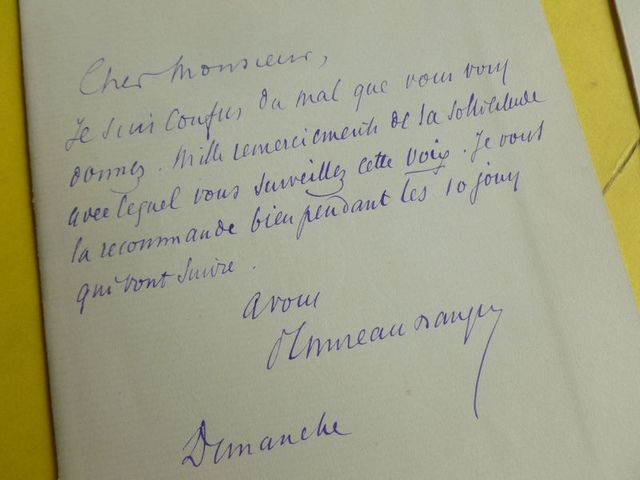 Cher Monsieur,
Je suis confus du mal que vous vous
donnez. Mille remerciements de la sollicitude
avec lequel vous surveillez cette voix. Je vous
la recommande bien pendant les 10 jours
qui vont suivre.
a vous
Dimanche